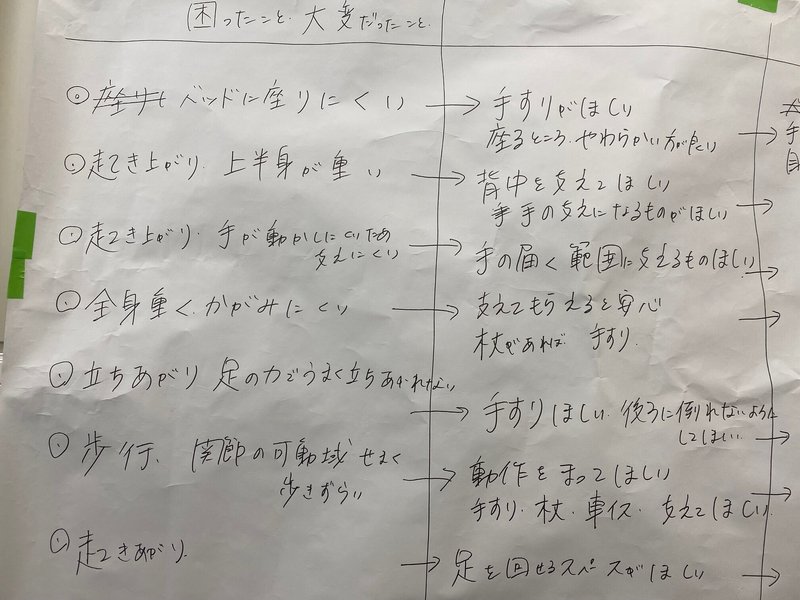 困ったこと・大変だったこと
ベッドに座りにくい → 手すりがほしい
座るところ、やわらかい方が良い
起き上がり、上半身が重い → 背中を支えてほしい
手の支えになるものがほしい
起き上がり、手が動かしにくいため
支えにくい → 手の届く範囲に支えるものほしい
全身重く、かがみにくい → 支えてもらえると安心
杖があれば 手すり
立ちあがり 足の力でうまく立ちあがれない
→ 手すりほしい、後ろに倒れないように
してほしい
歩行、関節の可動域せまく
歩きずらい → 動作をまってほしい
手すり・杖・車イス、支えてほしい
起きあがり → 足を回せるスペースがほしい
手